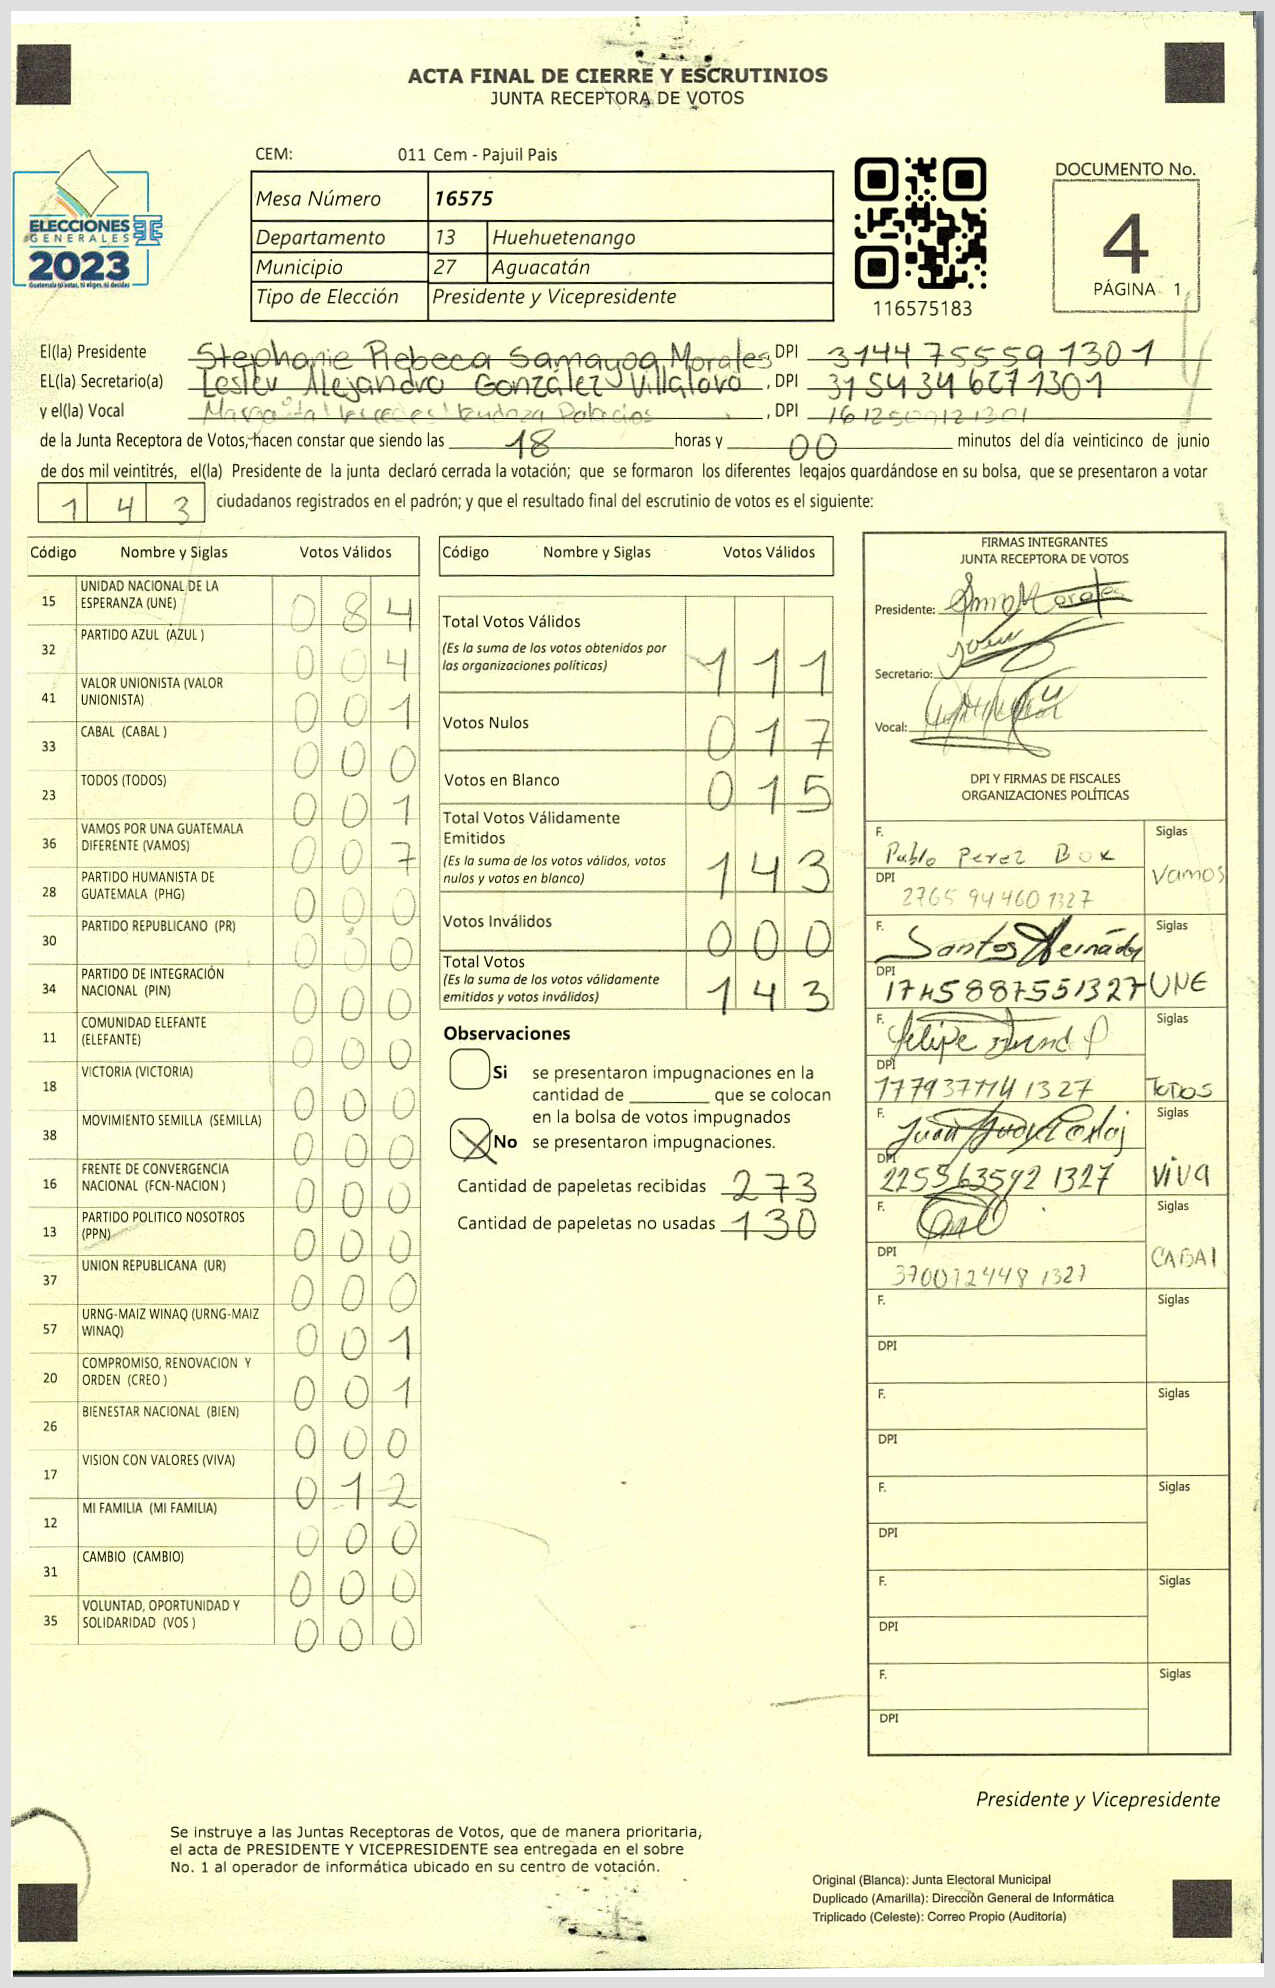 ACTA FINAL DE CIERRE Y ESCRUTINIOS
JUNTA RECEPTORA DE VOTOS
CEM: 011 Cem - Pajuil Pais
DOCUMENTO No.
4
PÁGINA 1
ELECCIONES
GENERALES
2023
Guatemala tú votas, tú eliges, tú decides
Mesa Número 16575
Departamento 13 Huehuetenango
Municipio 27 Aguacatán
Tipo de Elección Presidente y Vicepresidente
116575183
El(la) Presidente Stephanie Rebeca Samayoa Morales DPI 3144 75559 1301
EL(la) Secretario(a) Lesley Alejandra González Villatoro , DPI 3154 34627 1301
y el(la) Vocal Mendoza Palacios , DPI
de la Junta Receptora de Votos, hacen constar que siendo las 18 horas y 00 minutos del día veinticinco de junio
de dos mil veintitrés, el(la) Presidente de la junta declaró cerrada la votación; que se formaron los diferentes legajos quardándose en su bolsa, que se presentaron a votar
1 4 3 ciudadanos registrados en el padrón; y que el resultado final del escrutinio de votos es el siguiente:
Código Nombre y Siglas Votos Válidos
15 UNIDAD NACIONAL DE LA ESPERANZA (UNE) 0 8 4
32 PARTIDO AZUL (AZUL ) 0 0 4
41 VALOR UNIONISTA (VALOR UNIONISTA) 0 0 1
33 CABAL (CABAL ) 0 0 0
23 TODOS (TODOS) 0 0 1
36 VAMOS POR UNA GUATEMALA DIFERENTE (VAMOS) 0 0 7
28 PARTIDO HUMANISTA DE GUATEMALA (PHG) 0 0 0
30 PARTIDO REPUBLICANO (PR) 0 0 0
34 PARTIDO DE INTEGRACIÓN NACIONAL (PIN) 0 0 0
11 COMUNIDAD ELEFANTE (ELEFANTE) 0 0 0
18 VICTORIA (VICTORIA) 0 0 0
38 MOVIMIENTO SEMILLA (SEMILLA) 0 0 0
16 FRENTE DE CONVERGENCIA NACIONAL (FCN-NACION ) 0 0 0
13 PARTIDO POLITICO NOSOTROS (PPN) 0 0 0
37 UNION REPUBLICANA (UR) 0 0 0
57 URNG-MAIZ WINAQ (URNG-MAIZ WINAQ) 0 0 1
20 COMPROMISO, RENOVACION Y ORDEN (CREO ) 0 0 1
26 BIENESTAR NACIONAL (BIEN) 0 0 0
17 VISION CON VALORES (VIVA) 0 1 2
12 MI FAMILIA (MI FAMILIA) 0 0 0
31 CAMBIO (CAMBIO) 0 0 0
35 VOLUNTAD, OPORTUNIDAD Y SOLIDARIDAD (VOS ) 0 0 0
Código Nombre y Siglas Votos Válidos
Total Votos Válidos 1 1 1
(Es la suma de los votos obtenidos por
las organizaciones políticas)
Votos Nulos 0 1 7
Votos en Blanco 0 1 5
Total Votos Válidamente
Emitidos 1 4 3
(Es la suma de los votos válidos, votos
nulos y votos en blanco)
Votos Inválidos 0 0 0
Total Votos 1 4 3
(Es la suma de los votos válidamente
emitidos y votos inválidos)
Observaciones
Si se presentaron impugnaciones en la
cantidad de ________ que se colocan
en la bolsa de votos impugnados
No se presentaron impugnaciones.
Cantidad de papeletas recibidas 273
Cantidad de papeletas no usadas 130
FIRMAS INTEGRANTES
JUNTA RECEPTORA DE VOTOS
Presidente:
Secretario:
Vocal:
DPI Y FIRMAS DE FISCALES
ORGANIZACIONES POLÍTICAS
F. Pablo Perez Box Siglas
DPI 2765 94460 1327 Vamos
F. Santos Hernández Siglas
DPI 1745887551327 UNE
F. Felipe Siglas
DPI 1779371141327 TODOS
F. Juan Siglas
DPI 225563592 1327 VIVA
F. Siglas
DPI 370012448 1327 CABAl
F. Siglas
DPI
F. Siglas
DPI
F. Siglas
DPI
F. Siglas
DPI
F. Siglas
DPI
Presidente y Vicepresidente
Se instruye a las Juntas Receptoras de Votos, que de manera prioritaria,
el acta de PRESIDENTE Y VICEPRESIDENTE sea entregada en el sobre
No. 1 al operador de informática ubicado en su centro de votación.
Original (Blanca): Junta Electoral Municipal
Duplicado (Amarilla): Dirección General de Informática
Triplicado (Celeste): Correo Propio (Auditoría)